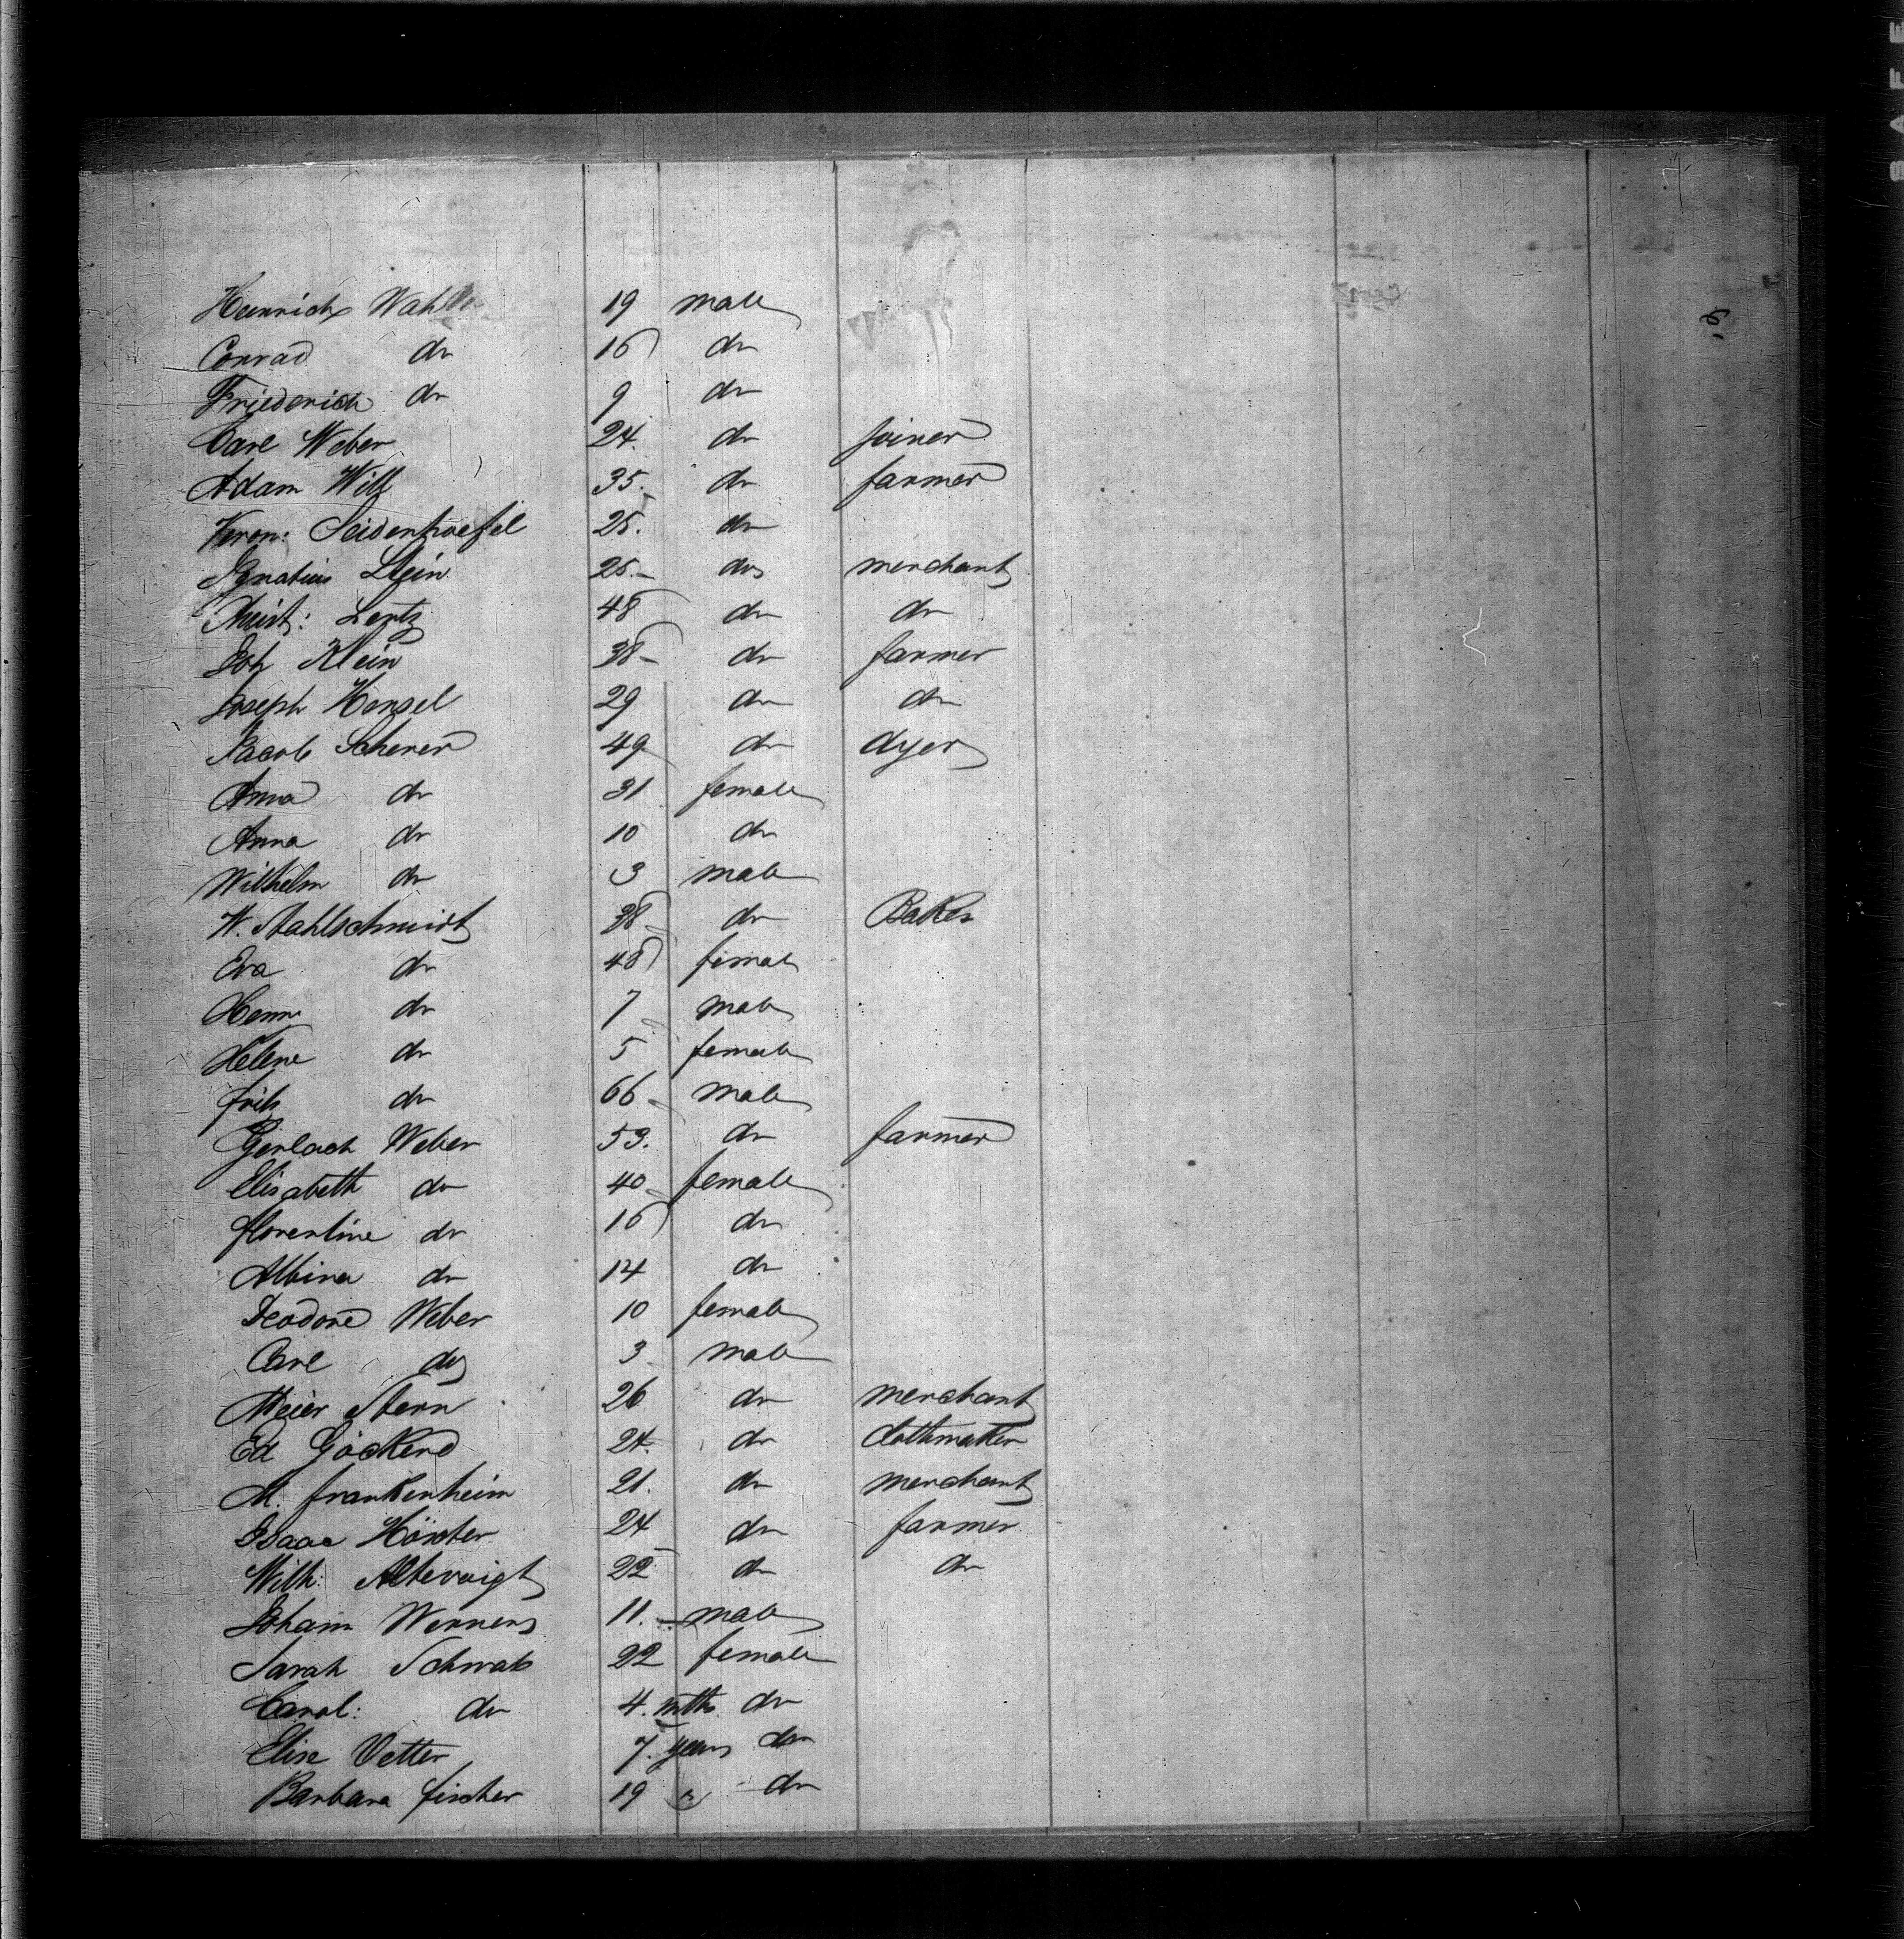 Heinrich Wahl 19 male
Conrad do 16 do
Friederich do 9 do
Carl Weber 24. do joiner
Adam Will 35. do farmer
Veron: Seidenhoefel 25. do
Ignatius Stein 25.- do merchant
Christ: Lentz 48 do do
Joh Klein 38- do farmer
Joseph Hensel 29 do do
Jacob Scherer 49 do dyer
Anna do 31 female
Anna do 10 do
Wilhelm do 3 male
W. Stahlschmidt 38 do Baker
Eva do 48 female
Henni do 7 male
Helene do 5 female
Fritz do 66 male
Gerlach Weber 53. do farmer
Elisabeth do 40 female
Florentine do 16 do
Albina do 14 do
Deodore Weber 10 female
Carl do 3 male
Meier Stern 26 do merchant
Ed Göckend 24. do clothmaker
M. Frankenheim 21. do merchant
Isaac Höxter 24 do farmer
Wilh: Altevoigt 22 do do
Joham Werners 11. male
Sarah Schwab 22 female
Carol: do 4. mths. do
Elise Vetter 7. years do
Barbara Fischer 19 do
SAFE